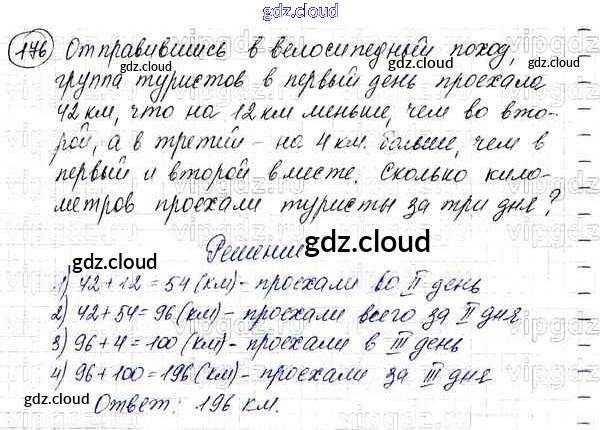 gdz.cloud
gdz.cloud
176 Отправившись в велосипедный поход,
группа туристов в первый день проехала
42 км, что на 12 км меньше, чем во вто-
рой, а в третий - на 4 км. больше, чем в
первый и второй вместе. Сколько кило-
метров проехали туристы за три дня?
Решение
1) 42 + 12 = 54 (км) - проехали во II день
2) 42 + 54 = 96 (км) - проехали всего за II дня
3) 96 + 4 = 100 (км) - проехали в III день
4) 96 + 100 = 196 (км) - проехали за III дня
Ответ: 196 км.
gdz.cloud
gdz.cloud
gdz.cloud
gdz.cloud
gdz.cloud